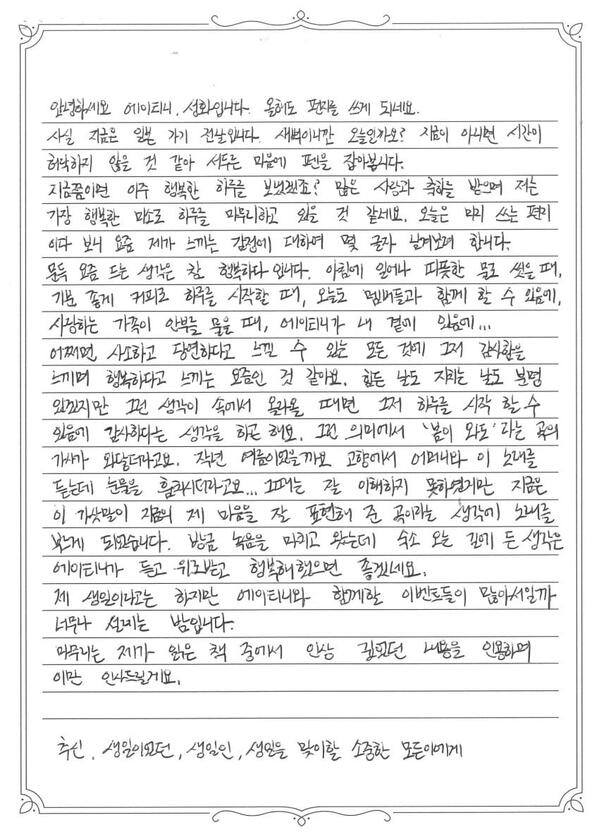 안녕하세요 에이티니, 성화입니다. 올해도 편지를 쓰게 되네요.
사실 지금은 일본 가기 전날입니다. 새벽이니깐 오늘인가요? 지금이 아니면 시간이
허락하지 않을 것 같아 서두른 마음에 펜을 잡아봅니다.
지금쯤이면 아주 행복한 하루를 보냈겠죠? 많은 사랑과 축하를 받으며 저는
가장 행복한 미소로 하루를 마무리하고 있을 것 같네요. 오늘은 미리 쓰는 편지
이다 보니 요즘 제가 느끼는 감정에 대하여 몇 글자 남겨보려 합니다.
문득 요즘 드는 생각은 참 행복하다 입니다. 아침에 일어나 따뜻한 물로 씻을 때,
기분 좋게 커피로 하루를 시작할 때, 오늘도 멤버들과 함께 할 수 있음에,
사랑하는 가족이 안부를 물을 때, 에이티니가 내 곁에 있음에...
어쩌면 사소하고 당연하다고 느낄 수 있는 모든 것에 그저 감사함을
느끼며 행복하다고 느끼는 요즘인 것 같아요. 힘든 날도 지치는 날도 분명
있겠지만 그런 생각이 속에서 올라올 때면 그저 하루를 시작 할 수
있음에 감사하다는 생각을 하곤 해요. 그런 의미에서 '봄이 와도' 라는 곡의
가사가 와닿더라고요. 작년 여름이었을까요 고향에서 어머니와 이 노래를
듣는데 눈물을 흘리시더라고요... 그때는 잘 이해하지 못하였지만 지금은
이 가삿말이 지금의 제 마음을 잘 표현해 준 곡이라는 생각에 노래를
부르게 되었습니다. 방금 녹음을 마치고 왔는데 숙소 오는 길에 든 생각은
에이티니가 듣고 위로받고 행복해했으면 좋겠네요.
제 생일이라고는 하지만 에이티니와 함께할 이벤트들이 많아서일까
너무나 설레는 밤입니다.
마무리는 제가 읽은 책 중에서 인상 깊었던 내용을 인용하며
이만 인사드릴게요.
추신. 생일이었던, 생일인, 생일을 맞이할 소중한 모든이에게